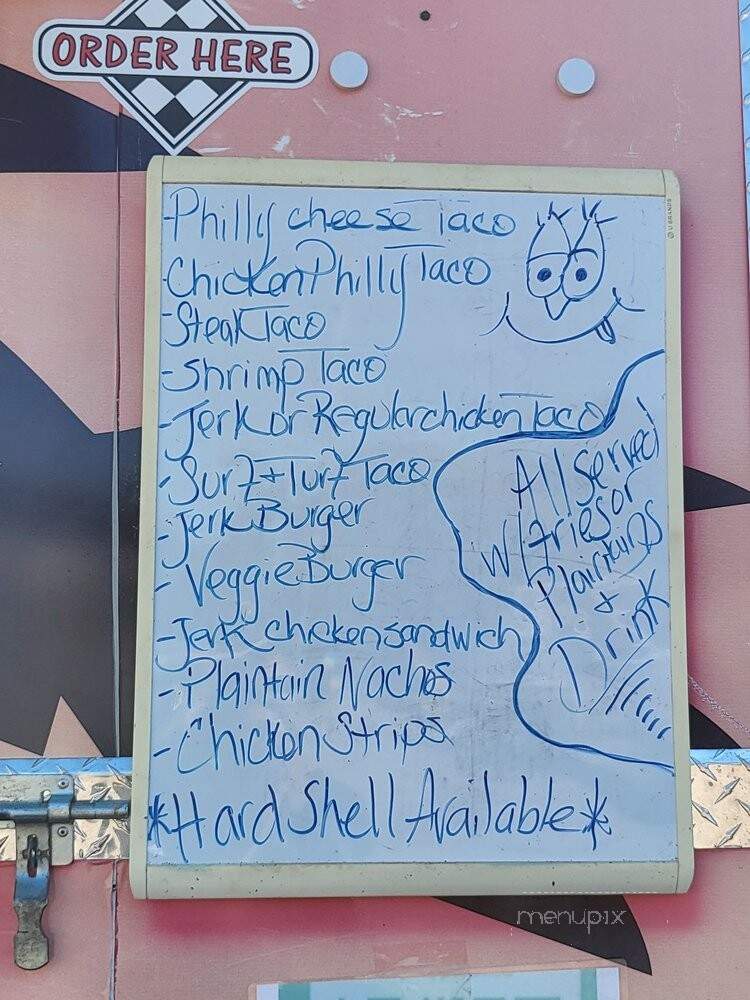 ORDER HERE
U BRANDS
-Philly cheese Taco
-Chicken Philly Taco
-Steak Taco
-Shrimp Taco
-Jerk or Regular chicken Taco
-Surf + Turf Taco
-Jerk Burger
-Veggie Burger
-Jerk chicken sandwich
-Plaintain Nachos
-Chicken Strips
*Hard Shell Available*
All Served
w/ fries or
Plaintains
+
Drink
menupix